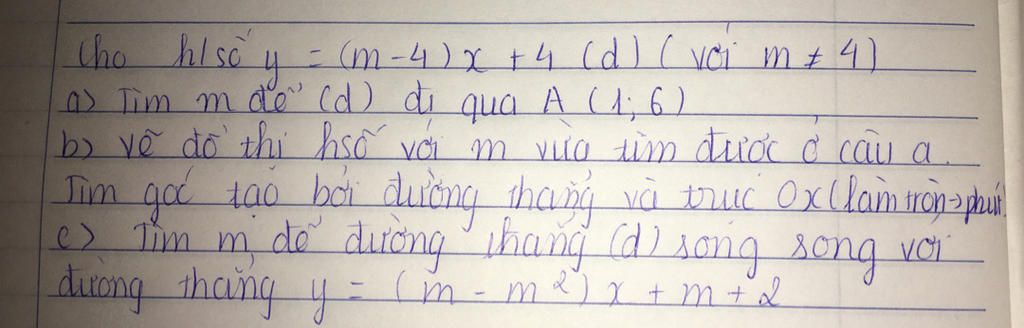 Cho h/số y = (m-4)x + 4 (d) (với m ≠ 4)
a) Tìm m để (d) đi qua A (1; 6)
b) vẽ đồ thị hsố với m vừa tìm được ở câu a.
Tìm góc tạo bởi đường thẳng và trục Ox (làm tròn → phút)
c) Tìm m để đường thẳng (d) song song với
đường thẳng y = (m - m²)x + m + 2